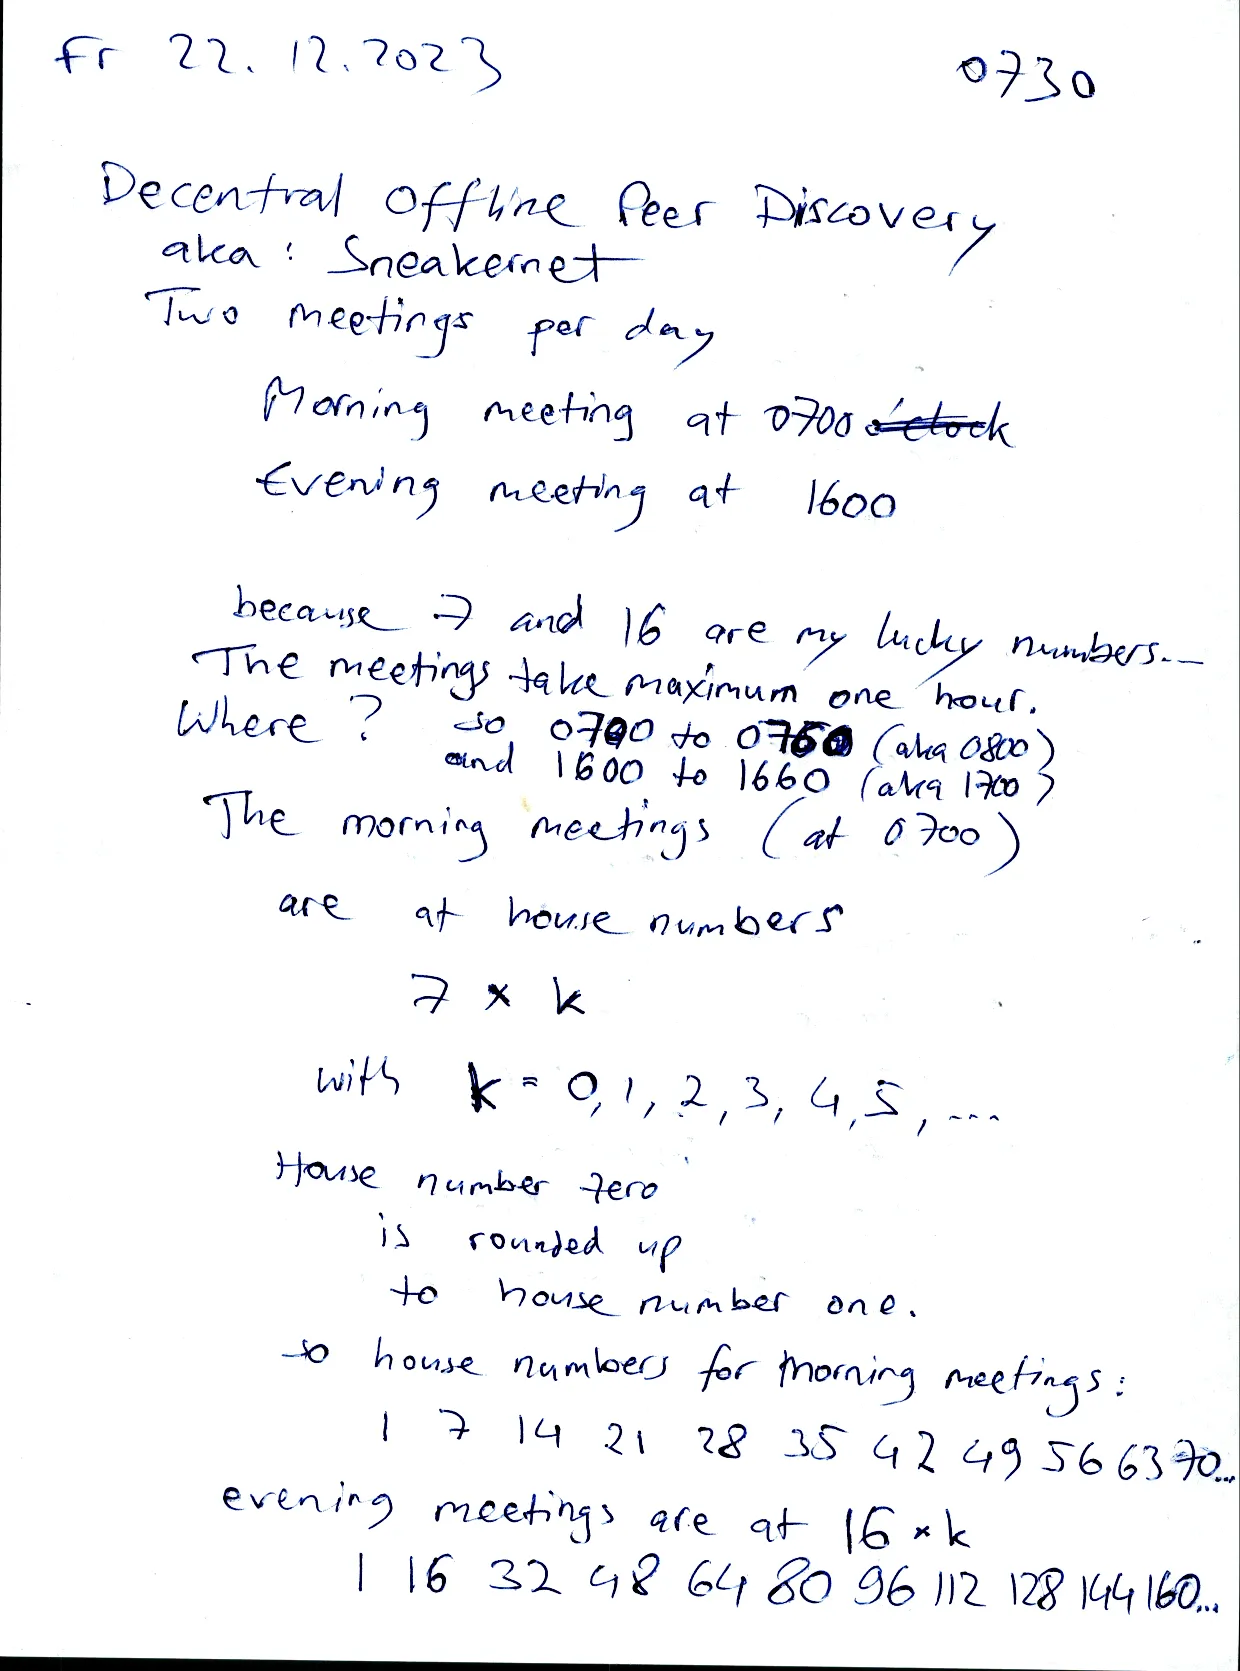 Fr 22.12.2023 0730
Decentral Offline Peer Discovery
aka: Sneakernet
Two meetings per day
Morning meeting at 0700 o'clock
Evening meeting at 1600
because 7 and 16 are my lucky numbers...
The meetings take maximum one hour.
Where? so 0700 to 0760 (aka 0800)
and 1600 to 1660 (aka 1700)
The morning meetings (at 0700)
are at house numbers
7 × k
with k = 0, 1, 2, 3, 4, 5, ...
House number zero
is rounded up
to house number one.
so house numbers for morning meetings:
1 7 14 21 28 35 42 49 56 63 70...
evening meetings are at 16 × k
1 16 32 48 64 80 96 112 128 144 160...